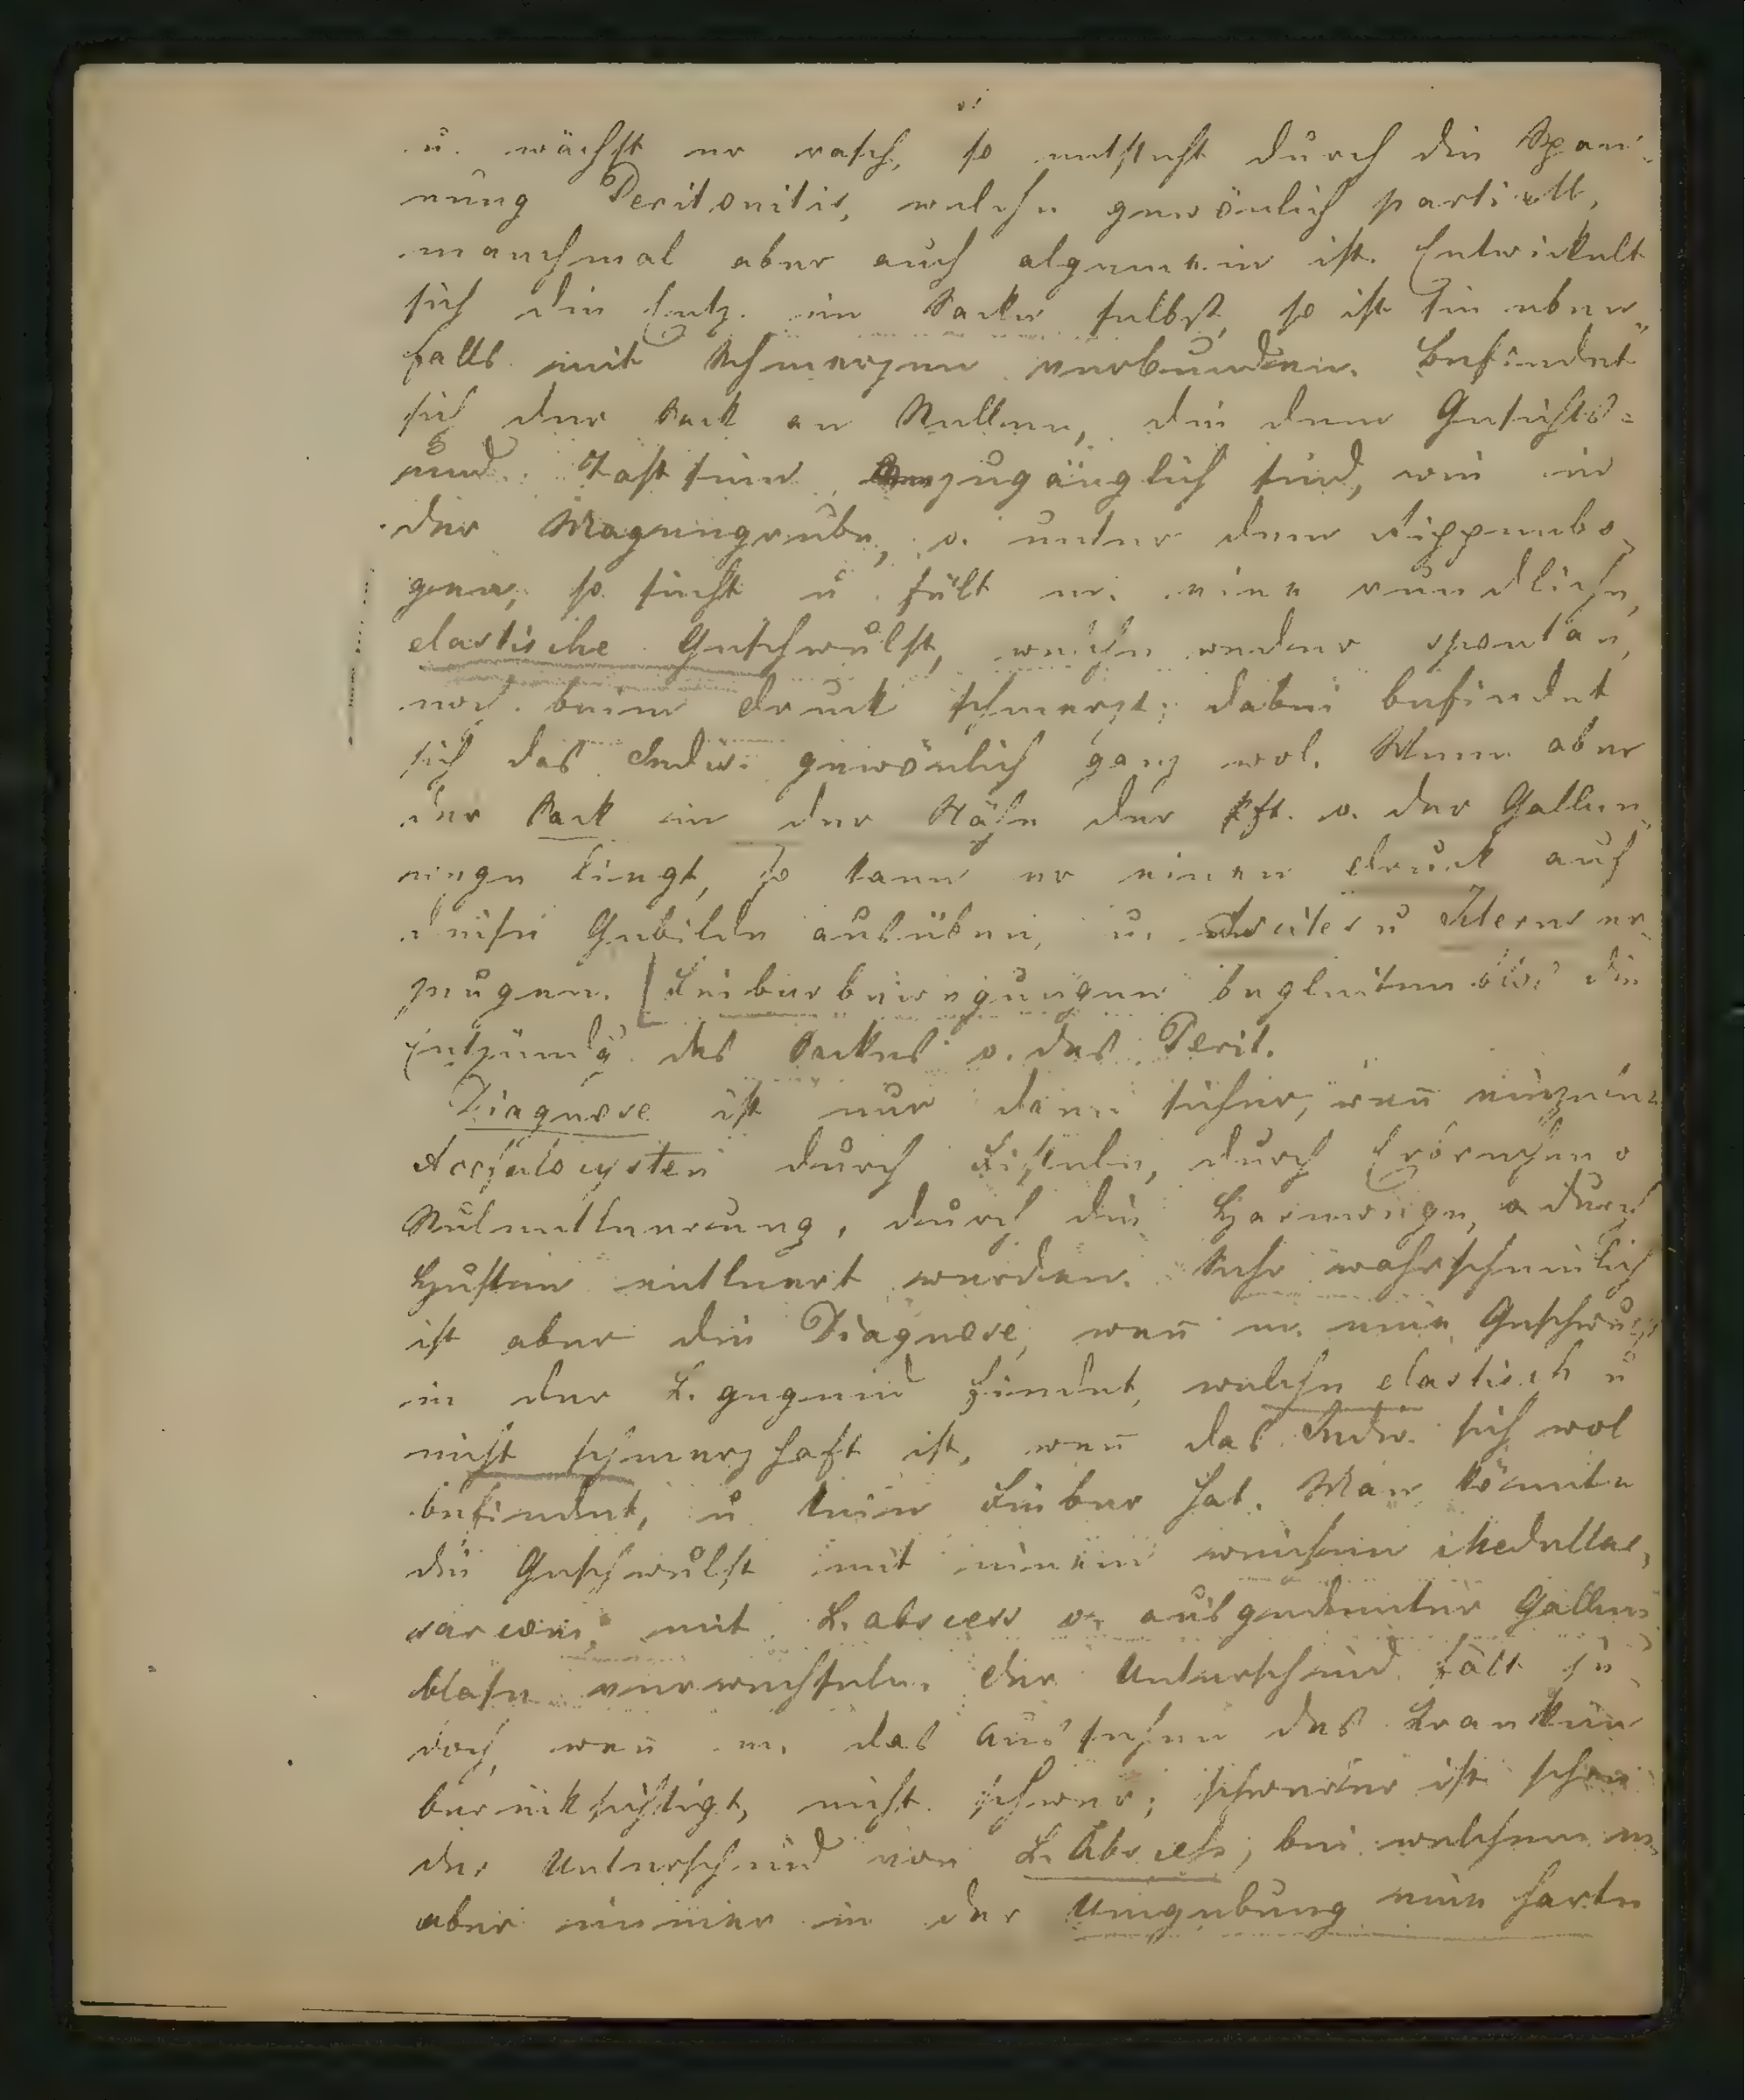 u. wächst er rasch, so entsteht durch die Span-
nung Peritonitis, welche gewönlich partiell,
manchmal aber auch algemein ist. Entwickelt
sich die Entz. im Sacke selbst, so ist sie eben-
falls mit Schmerzen verbunden. Befindet
sich der Sack an Stellen, die dem Gesichts=
und Tastsinn zugänglich sind, wie in
der Magengrube, o. unter dem Rippenbo-
gen, so sieht u fült m. eine rundliche,
elastische Geschwulst, welche weder spontan,
noch beim Druck schmerzt; dabei befindet
sich das Indiv. gewönlich ganz wol. Wenn aber
der Sack in der Nähe der Pft. o. der Gallen-
wege liegt, so kann er einen Druck auf
diese Gebilde ausüben, u. Ascites u Icterus er-
zeugen. [Fieberbewegungen begleiten die
Entzündg des Sackes o. des Perit.
Diagnose ist nur dann sicher, wenn einzelne
Acephalocysten durch Fisteln, durch Erbrechen o
Stulentleerung, durch die Harnwege, o durch
Husten entleert werden. Sehr wahrscheinlich
ist aber die Diagnose, wenn m. eine Geschwulst
in der L. gegend findet, welche elastisch u
nicht schmerzhaft ist, wenn das Indiv. sich wol
befindet, u kein Fieber hat. Man könnte
die Geschwulst mit einem weichen Medullar-
sarcom, mit L. abscess o. ausgedenter Gallen-
blase verwechseln. Der Unterschied fält je-
doch, wenn m. das Aussehen des Kranken
berücksichtigt, nicht schwer; schwerer ist schon
der Unterschied von L. Abscess, bei welchem m.
aber immer in der Umgebung eine harte